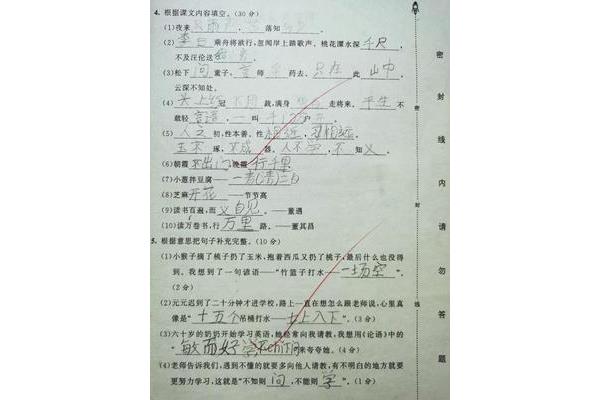 4. 根据课文内容填空。(30分)
(1)夜来 风雨声 , 落知
(2) 李白 乘舟将欲行,忽闻岸上踏歌声。桃花潭水深 千尺 ,
不及汪伦送
(3)松下 问 童子, 言 师 药去。 只在 此 山中 ,
云深不知处。
(4) 头上红 冠 不用 裁,满身 走将来。平生 不
敢轻 言语 , 一 叫 千门 户
(5) 人之 初,性本善。性 相近 , 习相远 。
玉不 琢, 不成 器。 人不学 , 不 知 义 。
(6)朝霞 不出门 ,晚霞 行千里
(7)小葱拌豆腐—— 一青(清)二白
(8)芝麻 开花 ——节节高
(9)读书百遍,而 义自见 。——董遇
(10)读万卷书,行 万里 路。——董其昌
5. 根据意思把句子补充完整。(10分)
(1)小猴子摘了桃子扔了玉米,抱着西瓜又扔了桃子,最后什么也没得
到。我想到了一句谚语——“竹篮子打水—— 一场空 ”。
(2分)
(2)元元迟到了二十分钟才进学校,路上一直在想怎么跟老师说,心里真
像是“ 十五个 吊桶打水—— 七上八下 ”。(3分)
(3)六十岁的奶奶开始学习英语,她经常向我请教,我想用《论语》中的
“ 敏而好学 不耻下问 ”来夸夸她。(4分)
(4)老师告诉我们,遇到不懂的就要多向他人请教,有不明白的地方就要
更努力学习,这就是“不知则 问 ,不能则 学 ”。(1分)
密 封 线 内 请 勿 答 题
密 封 线